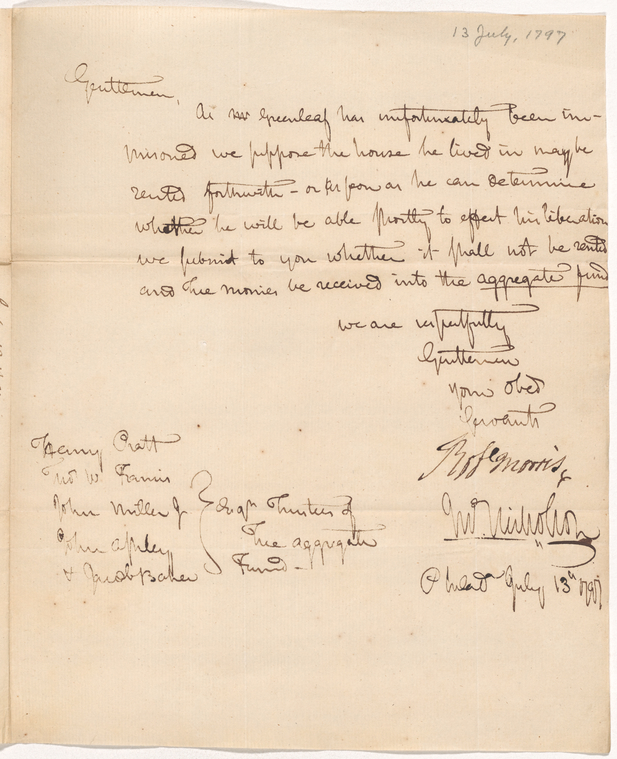 13 July, 1797
Gentlemen,
As Mr Greenleaf has unfortunately been im-
prisoned we suppose the house he lived in may be
rented forthwith – or as soon as he can determine
whether he will be able shortly to effect his liberation
we submit to you whether it shall not be rented
and the monies be received into the aggregate fund
we are respectfully
Gentlemen
your obed
Servants
Robt Morris
Jno. Nicholson
Philada July 13th 1797
Henry Pratt
Thos W. Francis
John Miller Jr
John Ashley
& Jacob Baker
Esqrs Trustees of
the aggregate
Fund –